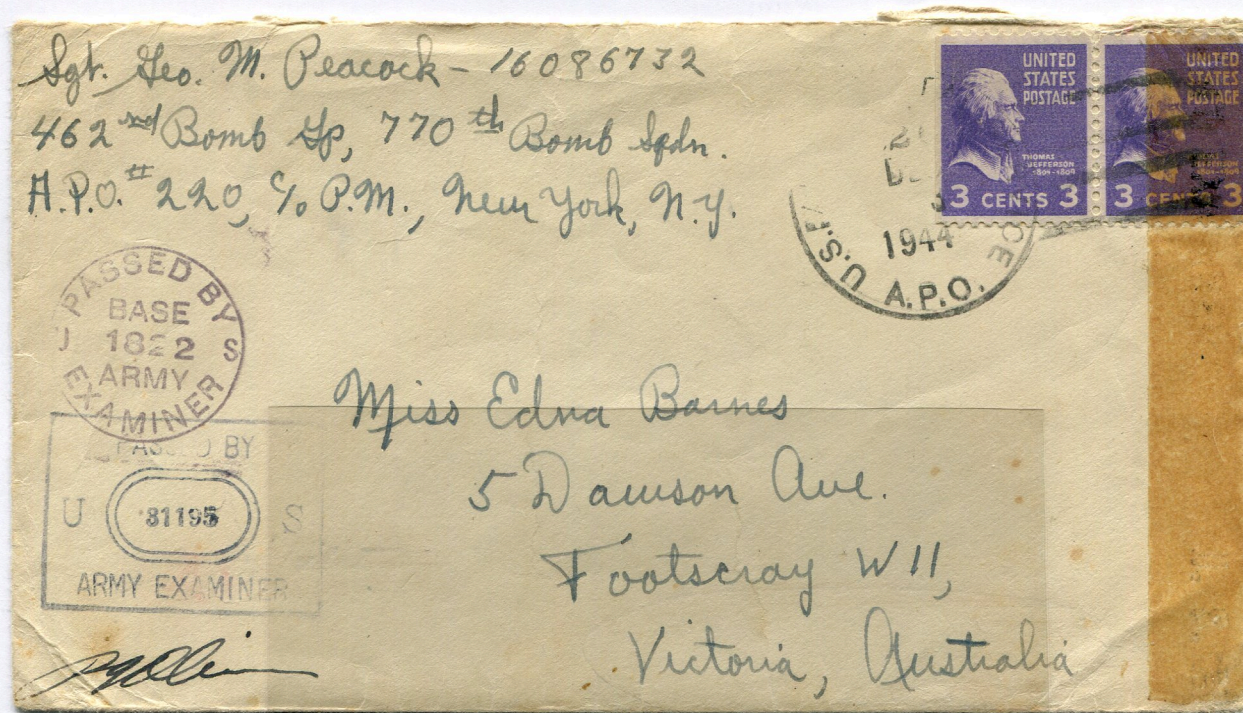 Sgt. Geo. M. Peacock - 16086732
462nd Bomb Gp, 770th Bomb Sqdn.
A.P.O. # 220, c/o P.M., New York, N.Y.
UNITED
STATES
POSTAGE
THOMAS
JEFFERSON
1801-1809
3 CENTS 3
UNITED
STATES
POSTAGE
JEFFERSON
1801-1809
3 CENTS 3
1944
U.S. A.P.O.
PASSED BY
BASE
1822
ARMY
U S
EXAMINER
PASSED BY
U 81195 S
ARMY EXAMINER
Miss Edna Barnes
5 Dawson Ave.
Footscray W 11,
Victoria, Australia